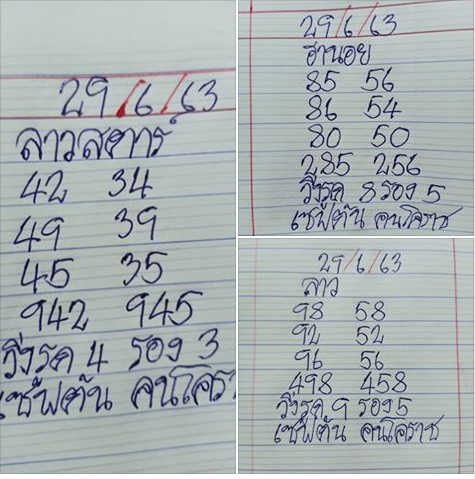 29/6/63
ลาวสตาร์
42 34
49 39
45 35
942 945
วิ่งรูด 4 รอง 3
เซฟตัน คนโครา
29/6/63
ฮานอย
85 56
86 54
80 50
285 256
วิ่งรูด 8 รอง 5
เซฟตัน คนโคราช
29/6/63
ลาว
98 58
92 52
96 56
498 458
วิ่งรูด 9 รอง 5
เซฟตัน คนโคราช